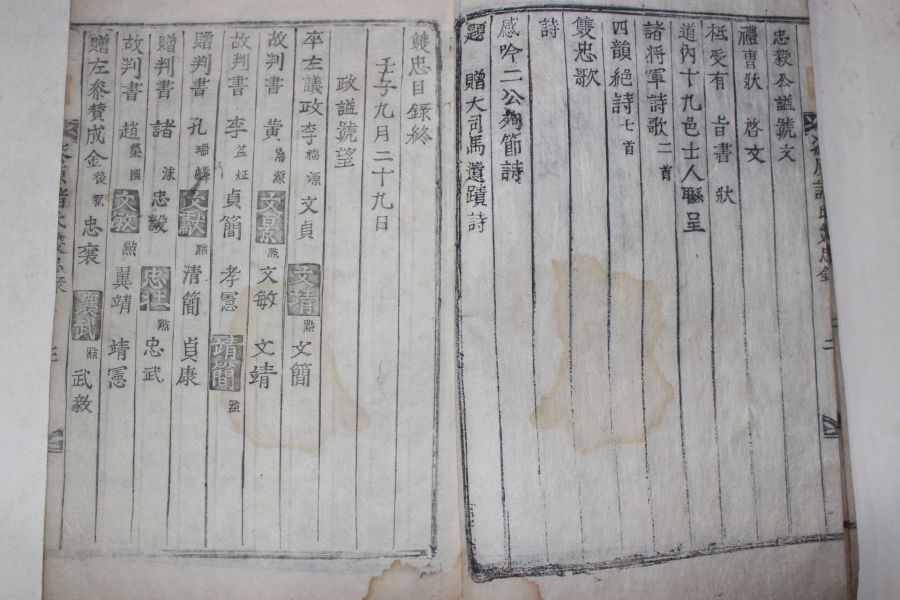 忠毅公謚號文
禮曺狀 啓文
祗受有 旨書 狀
道內十九邑士人聯呈
諸將軍詩歌二首
四韻絕詩七首
雙忠歌
詩
感吟二公殉節詩
題 贈大司馬遺蹟詩
雙忠目錄終
壬子九月二十九日
政謚號望
卒左議政李福源 文貞 文靖點 文簡
故判書 黃景源 文景點 文敏 文靖
故判書 李益炡 貞簡 孝憲 靖簡點
贈判書 孔瑞麟 文獻點 清簡 貞康
贈判書 諸沫 忠毅 忠壯點 忠武
故判書 趙榮國 文敏點 翼靖 靖憲
贈左叅贊成金俊 忠襄 襄武點 武毅
二